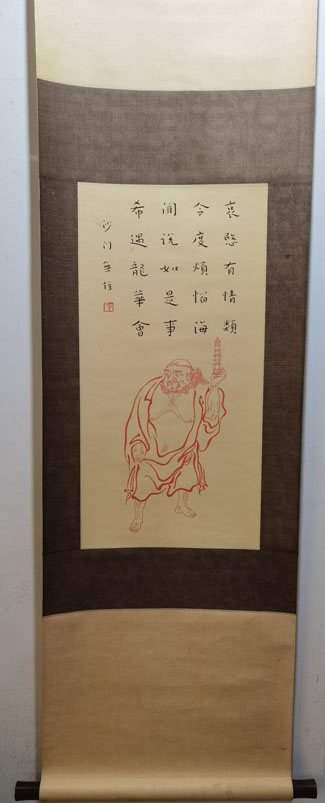 哀愍有情類
令度煩惱海
聞說如是事
希遇龍華會
沙门無住